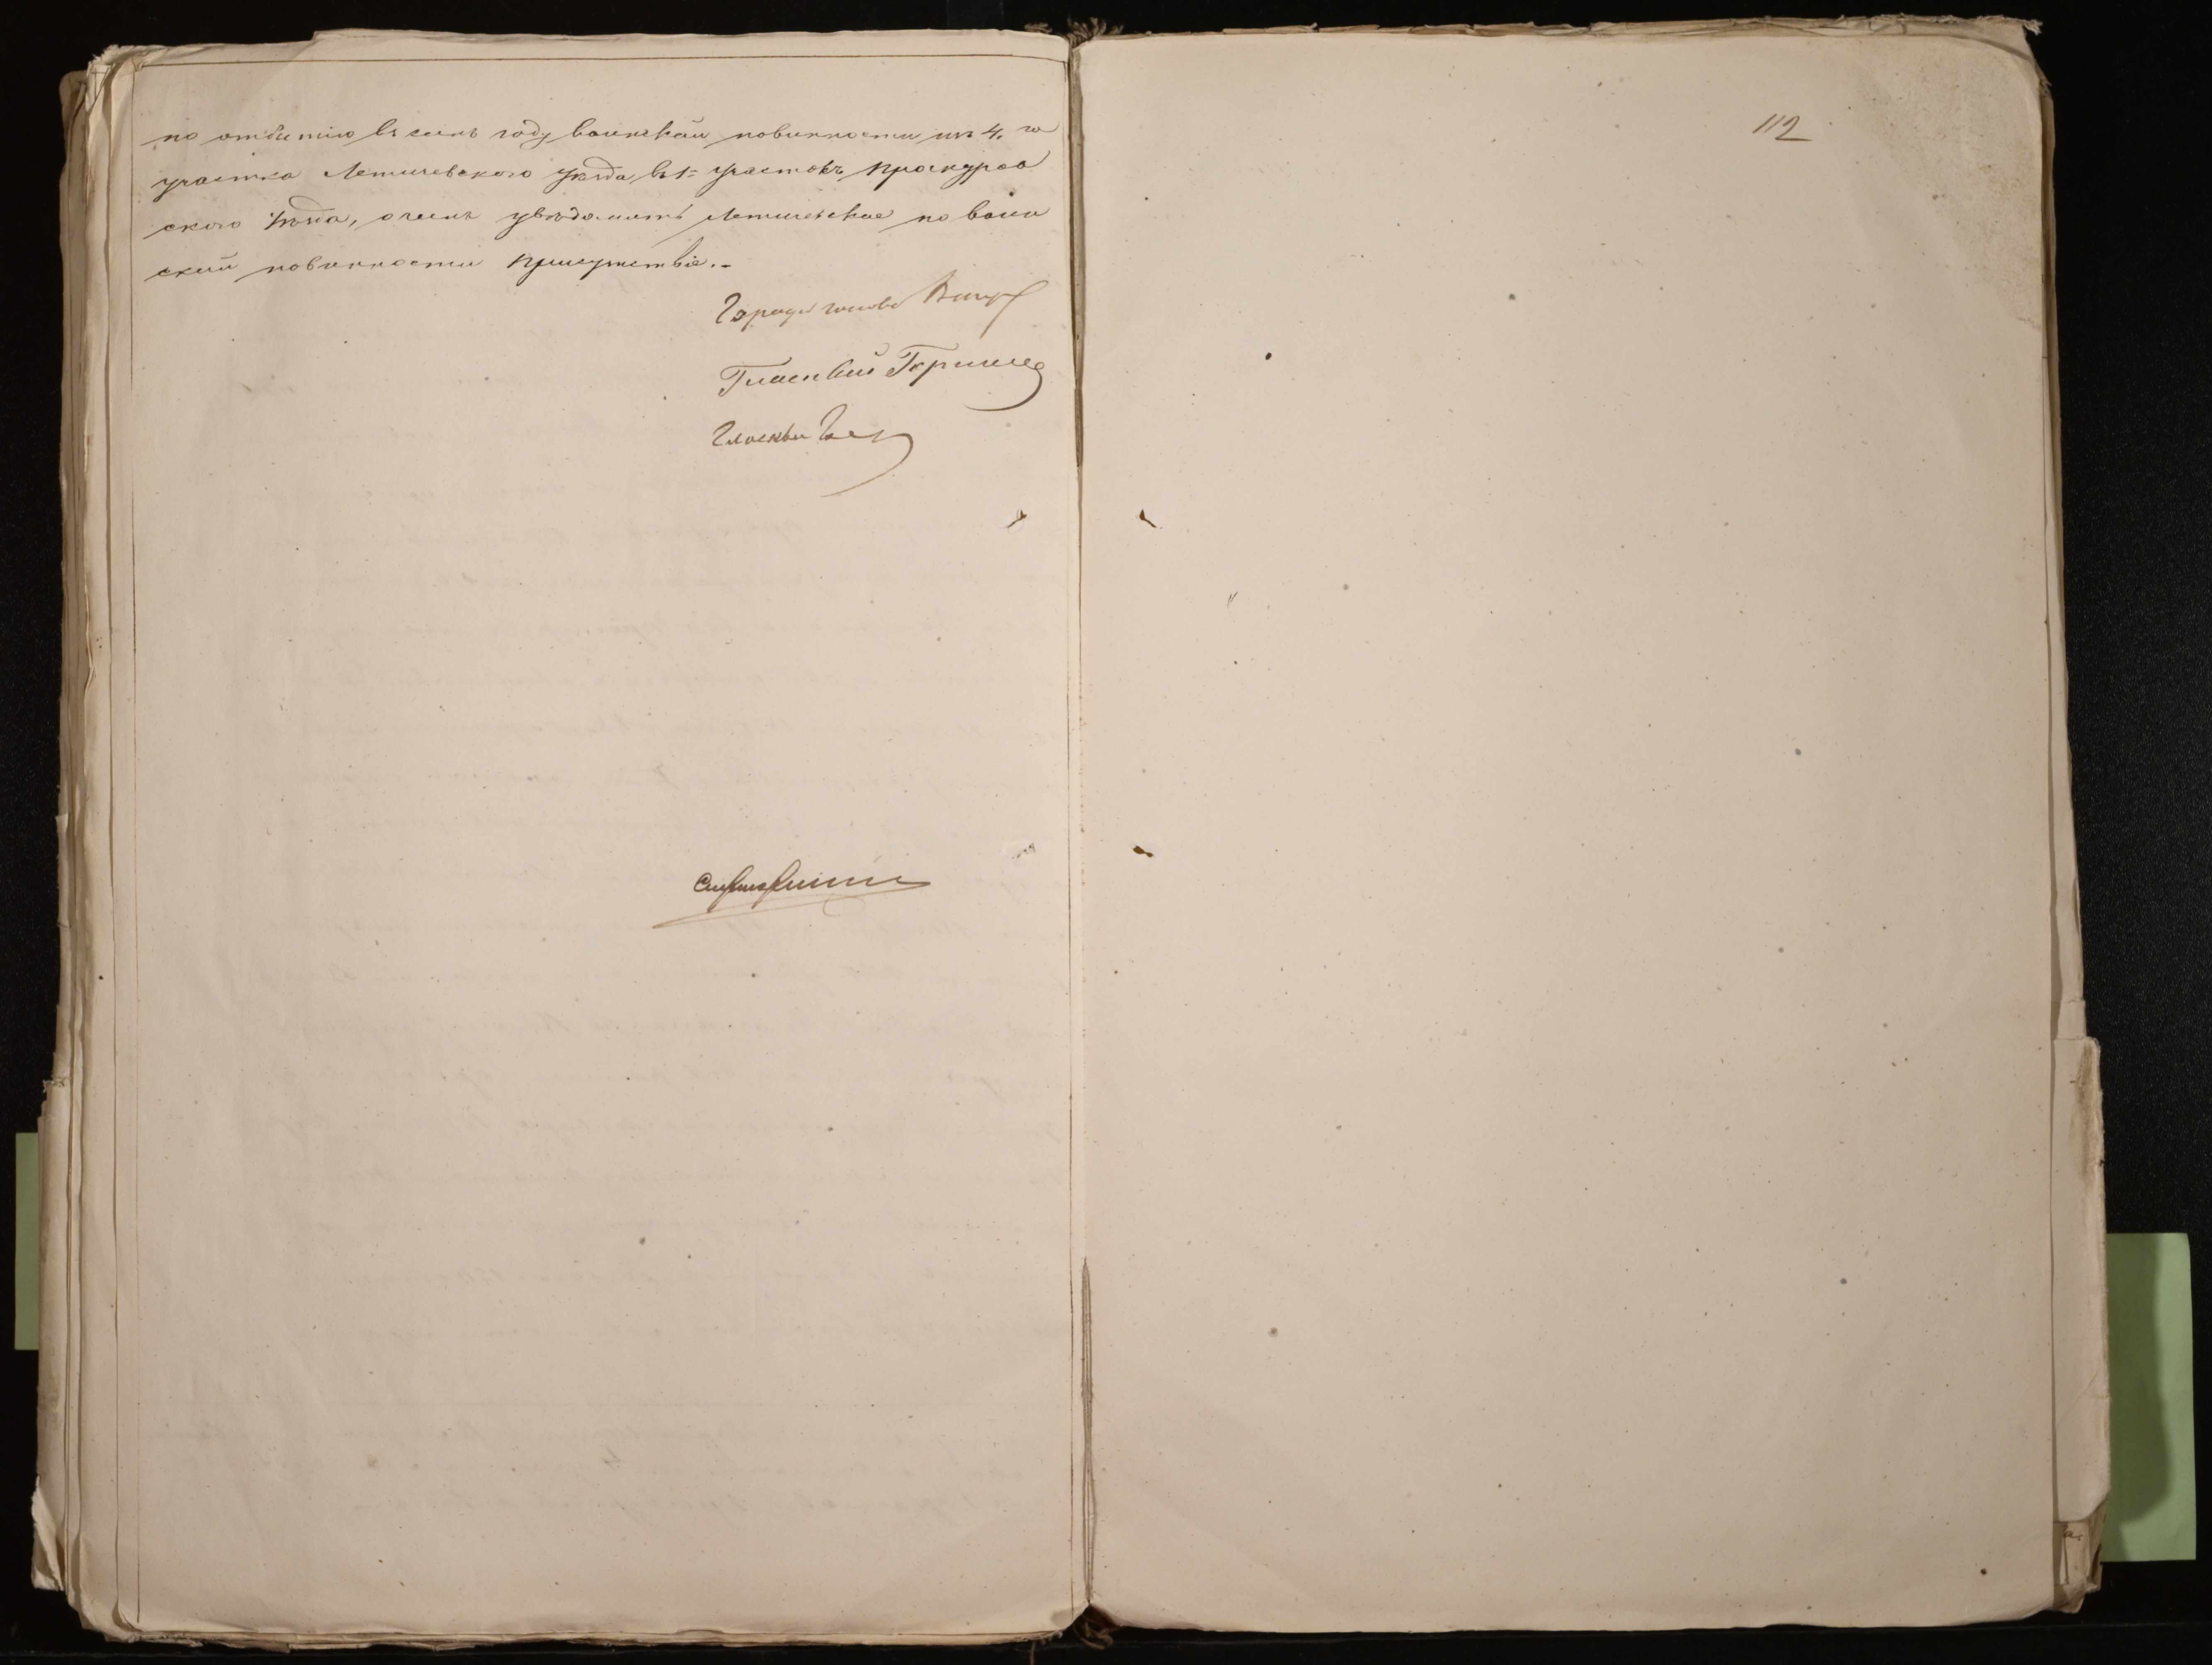 по отбытію въ семъ году воинской повинности изъ 4. го
участка Летичевского уѣзда въ 1й участокъ Проскуров
ского уѣзда, о чемъ увѣдомить Летичевское по воин
ской повинности Присутствіе.-
Гласный
Гласный
112